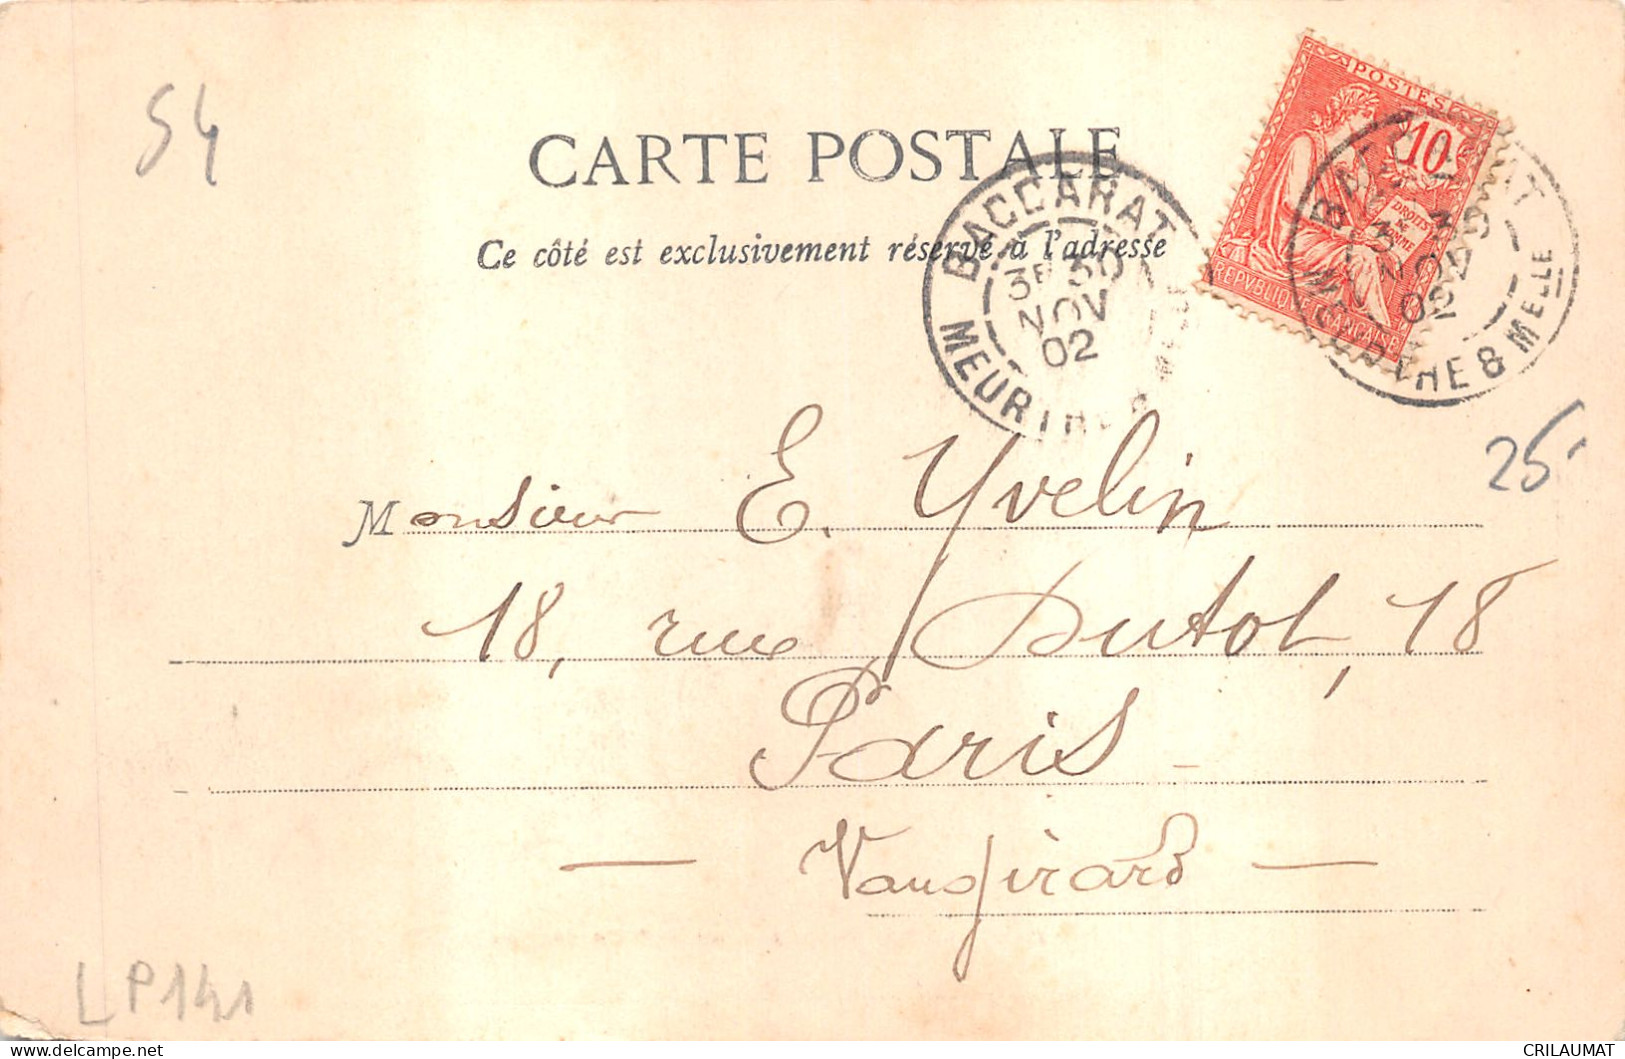 54
CARTE POSTALE
Ce côté est exclusivement réservé à l'adresse
BACCARAT
3E 30
NOV
02
MEURTHE &
POSTES
10
DROITS
DE
HOMME
REPVBLIQVE FRANÇAISE
BACCARAT
3E 30
NOV
02
MEURTHE & MELLE
25
Monsieur E. Yvelin
18, rue Dutot, 18
Paris -
- Vaugirard -
LP141
CRILAUMAT